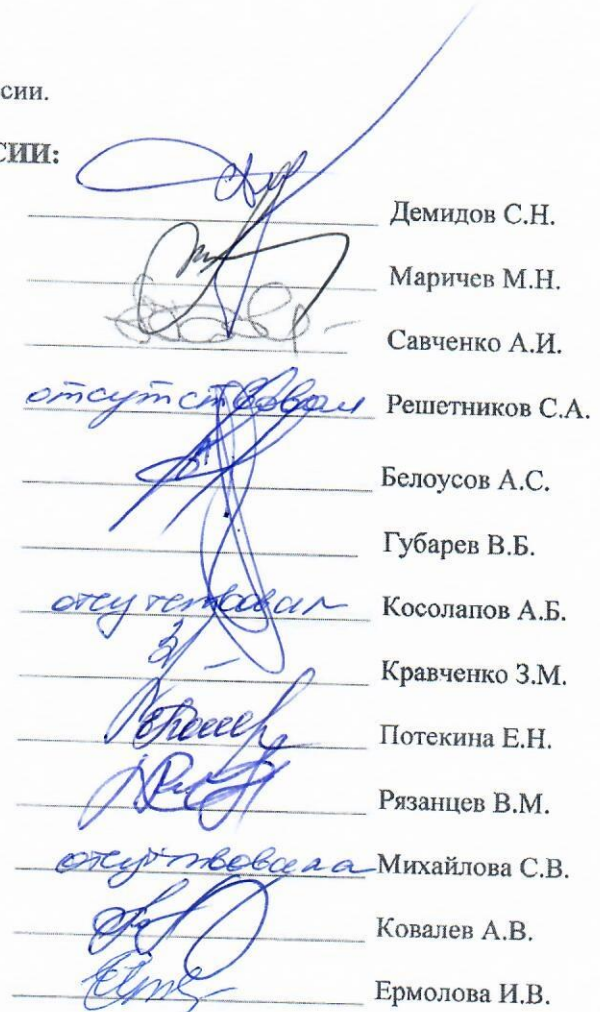 сии.
СИИ:
Демидов С.Н.
Маричев М.Н.
Савченко А.И.
отсутствовал Решетников С.А.
Белоусов А.С.
Губарев В.Б.
отсутствовал Косолапов А.Б.
Кравченко З.М.
Потекина Е.Н.
Рязанцев В.М.
отсутствовала Михайлова С.В.
Ковалев А.В.
Ермолова И.В.